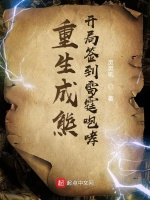 开局签到雷霆咆哮
重生成熊
起点中文网